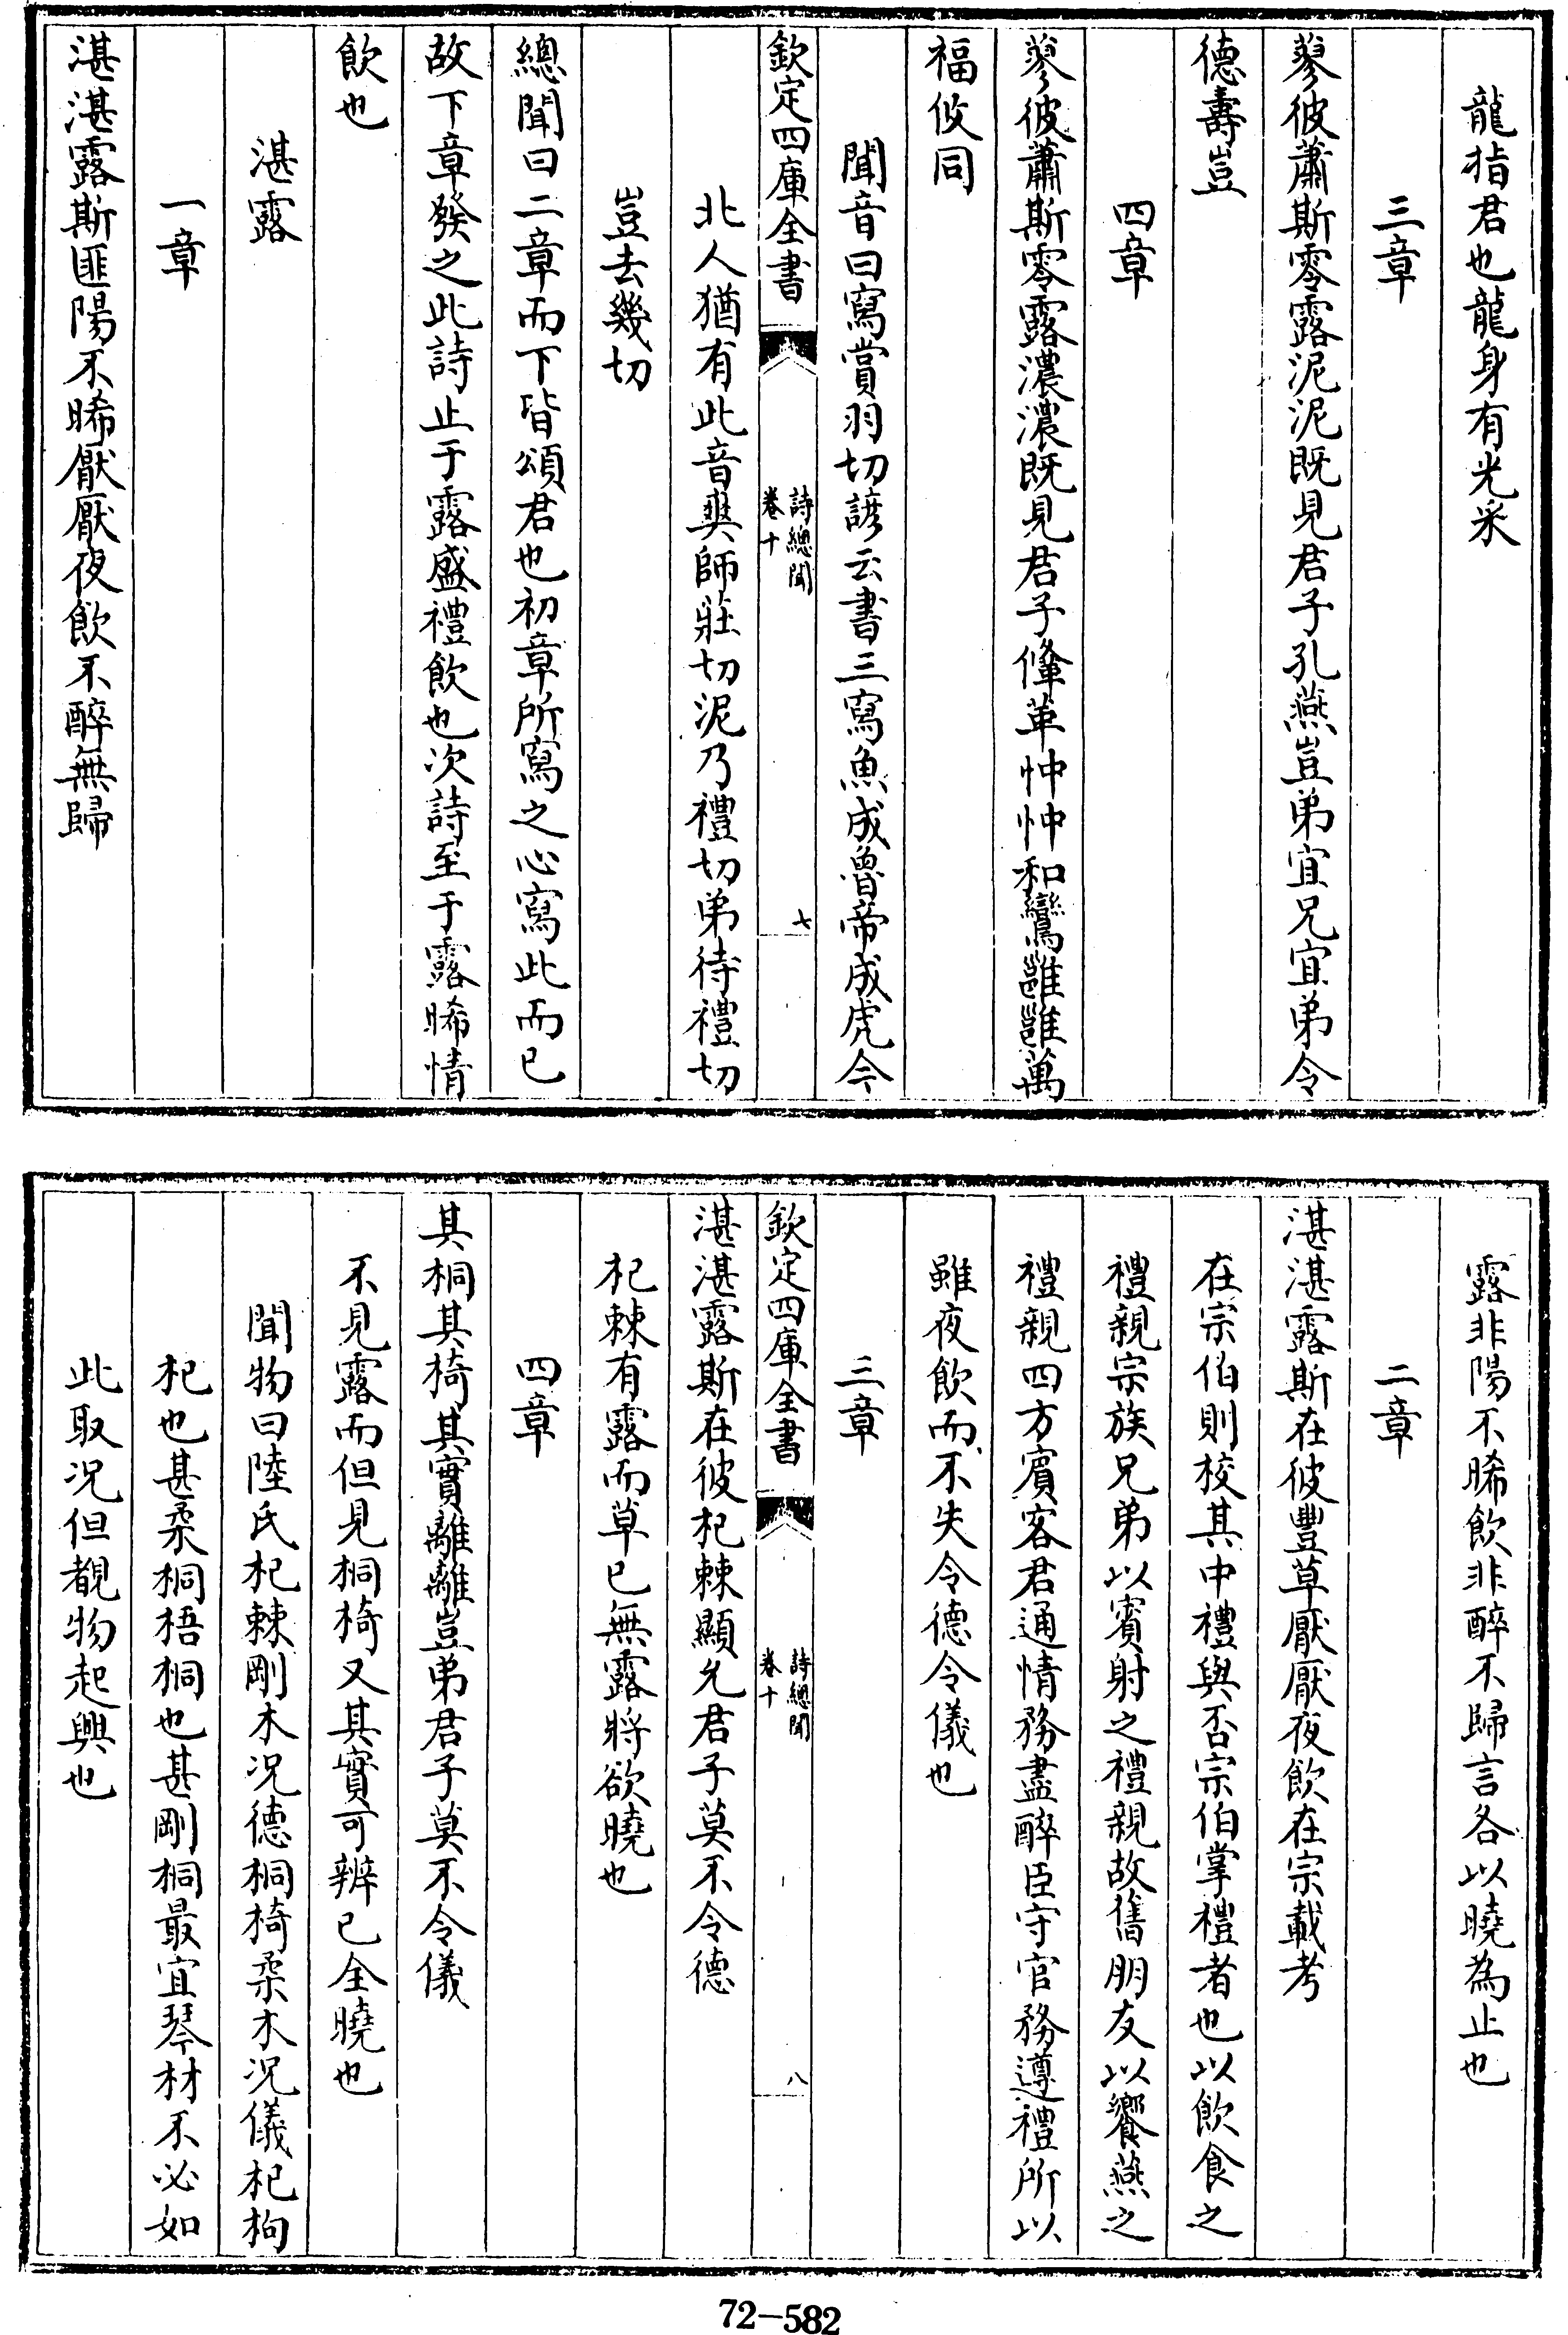 龍指君也龍身有光采
三章
蓼彼蕭斯零露泥泥既見君子孔燕豈弟宜兄宜弟令
德壽豈
四章
蓼彼蕭斯零露濃濃既見君子鞗革忡忡和鸞雝雝萬
福攸同
聞音曰寫賞羽切諺云書三寫魚成魯帝成虎今
欽定四庫全書
詩總聞
卷十
七
北人猶有此音爽師莊切泥乃禮切弟待禮切
豈去幾切
總聞曰二章而下皆頌君也初章所寫之心寫此而已
故下章發之此詩止于露盛禮飲也次詩至于露晞情
飲也
湛露
一章
湛湛露斯匪陽不晞厭厭夜飲不醉無歸
露非陽不晞飲非醉不歸言各以曉為止也
二章
湛湛露斯在彼豐草厭厭夜飲在宗載考
在宗伯則校其中禮與否宗伯掌禮者也以飲食之
禮親宗族兄弟以賓射之禮親故舊朋友以饗燕之
禮親四方賓客君通情務盡醉臣守官務遵禮所以
雖夜飲而不失令德令儀也
三章
欽定四庫全書
詩總聞
卷十
八
湛湛露斯在彼杞棘顯允君子莫不令德
杞棘有露而草已無露將欲曉也
四章
其桐其椅其實離離豈弟君子莫不令儀
不見露而但見桐椅又其實可辨已全曉也
聞物曰陸氏杞棘剛木况德桐椅柔木况儀杞枸
杞也甚柔桐梧桐也甚剛桐最宜琴材不必如
此取况但覩物起興也
72-582